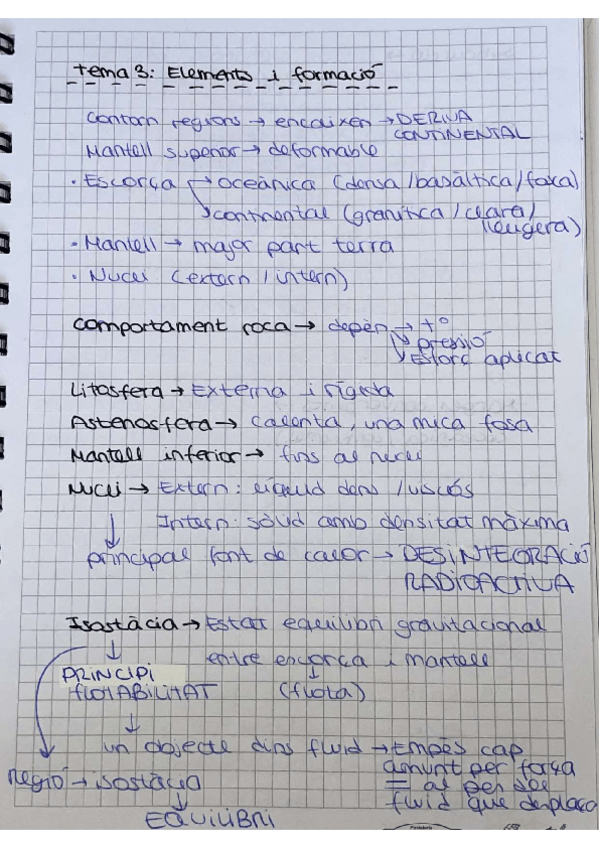 Tema 3: Elements i formació
Contorn regions → encaixen → DERIVA
CONTINENTAL
Mantell superior → deformable
· Escorça → oceànica (densa / basàltica / fosca)
→ continental (granítica / clara /
lleugera)
· Mantell → major part terra
· Nucli (extern / intern)
Comportament roca → depèn → tº
→ pressió
→ Esforç aplicat
Litosfera → Externa i rígida
Astenosfera → calenta, una mica fosa
Mantell inferior → fins al nucli
Nucli → Extern: líquid dens / viscós
Intern: sòlid amb densitat màxima
principal font de calor → DESINTEGRACIÓ
RADIOACTIVA
Isostàcia → Estat equilibri gravitacional
entre escorça i mantell
PRINCIPI
FLOTABILITAT (flota)
un objecte dins fluid → Empès cap
amunt per força
= al pes del
fluid que desplaça
Regió → isostàcia
EQUILIBRI